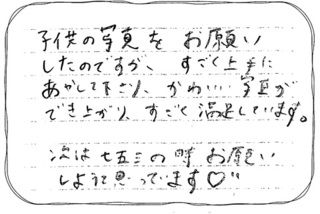 子供の写真を お願い
したのですが、 すごく上手に
あかして下さり、かわいい 写真が
でき上がり、すごく満足しています。
次は七五三の時お願い
しようと思っています♡"